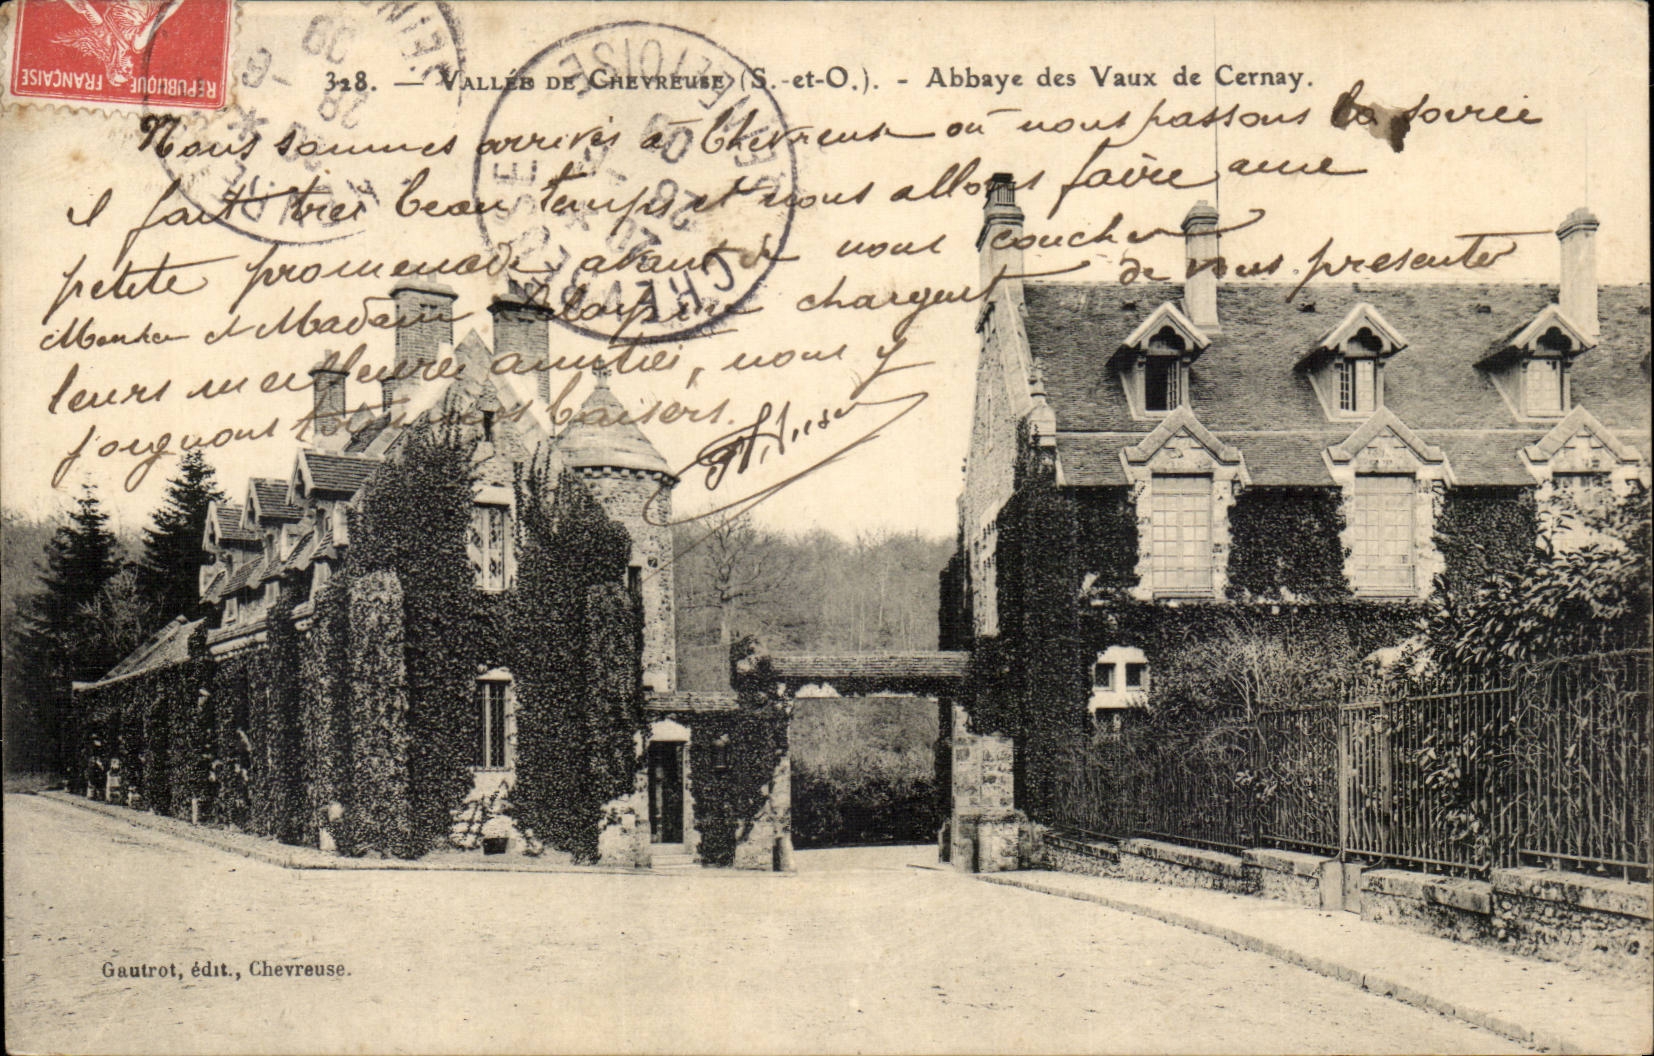 RÉPUBLIQUE FRANÇAISE
328. — VALLÉE DE CHEVREUSE (S.-et-O.). - Abbaye des Vaux de Cernay.
Nous sommes arrivés à Chevreuse où nous passons la soirée
il fait très beau temps et nous allons faire une
petite promenade avant de nous coucher
et Madame chargent de vous presenter
leurs meilleures amitiés, nous y
joignons tous nos baisers.
CHEVREUSE
SEINE-ET-OISE
Gautrot, édit., Chevreuse.